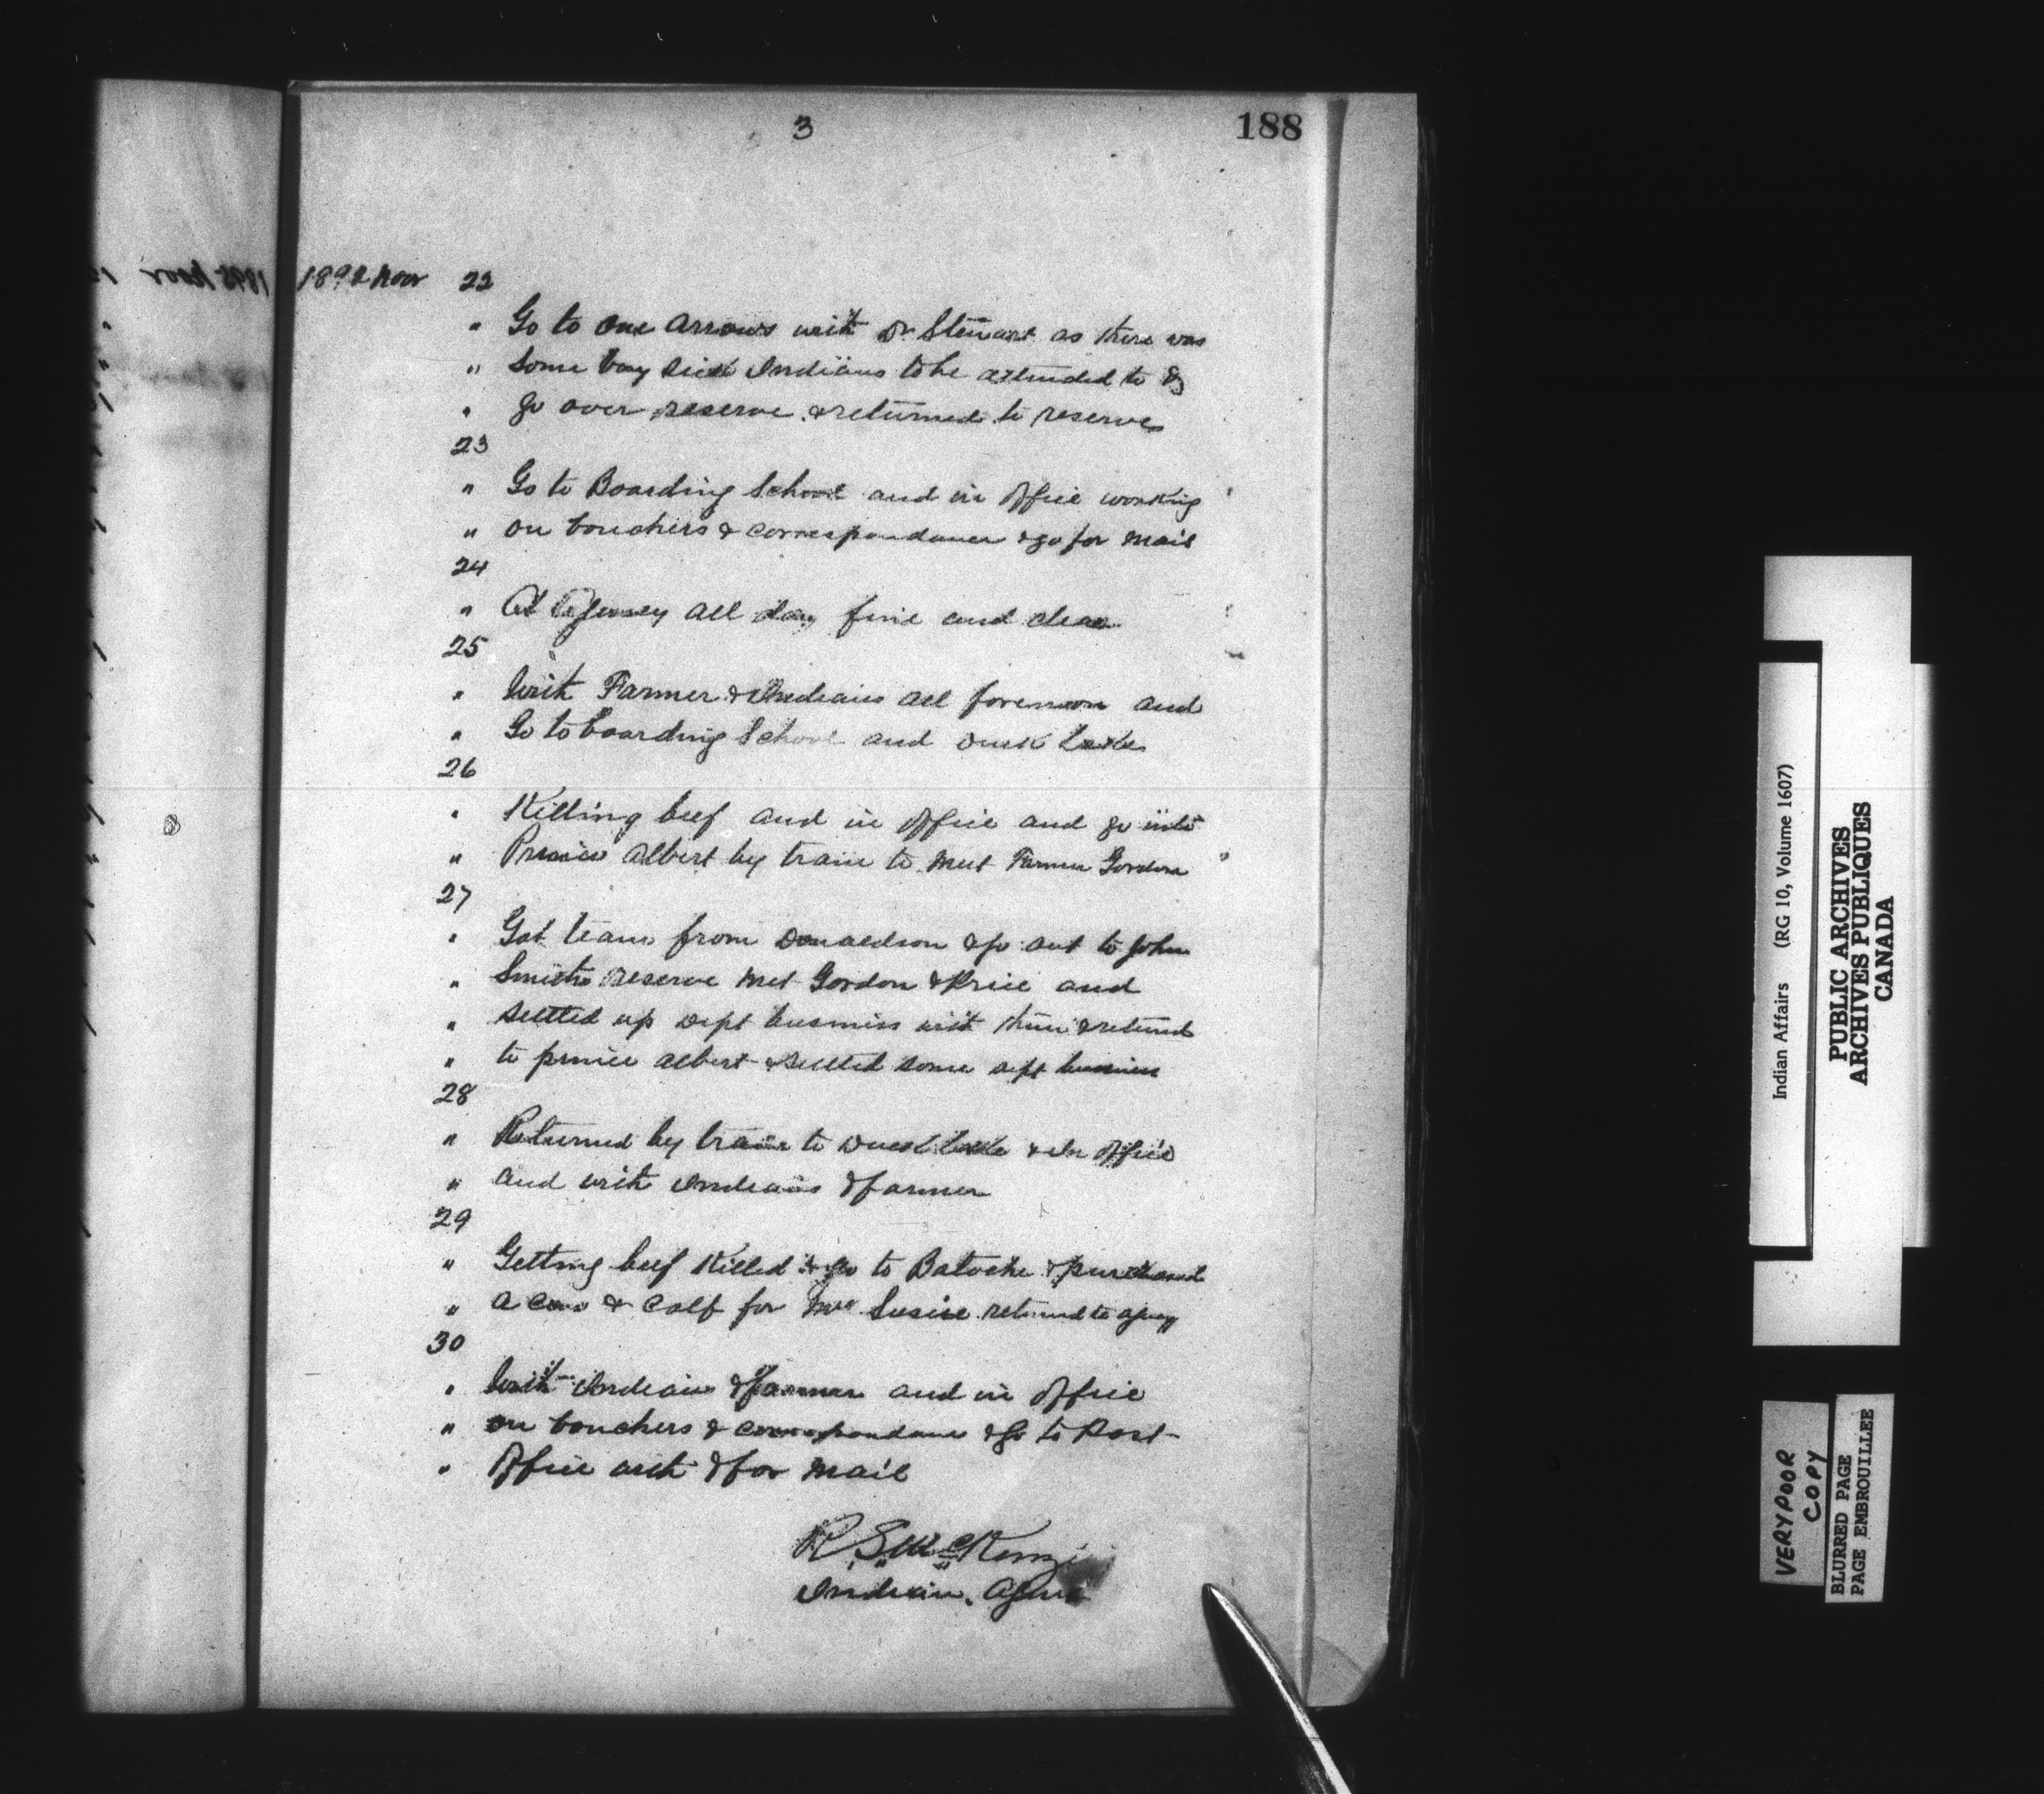 3
188
189 Novr 22
" Go to One Arrows with Dr Stewart as there was
" Some very sick Indians to be attended to &
" go over reserve & returned to reserve
23
" Go to Boarding School and in office working
" on vouchers & correspondance & go for mail
24
" At Agency all day fine and clear
25
" With Farmer & Indians all forenoon and
" Go to boarding School and Duck Lake
26
" Killing beef and in office and go into
" Prince Albert by train to meet Farmer Gordon
27
" Got team from Donaldson & go out to John
" Smiths reserve met Gordon & Price and
" settled up Dept business with them & returnd
" to prince albert & settled some dept business
28
" Returned by train to Duck Lake & in office
" and with Indians & farmer
29
" Getting beef Killed & go to Batoche & purchased
" a Cow & Calf for Mrs returned to agency
30
" With Indians & farmer and in office
" on vouchers & correspondance & go to Post
" office with & for mail
R. S. McKenzie
Indian. Agent
Indian Affairs (RG 10, Volume 1607)
PUBLIC ARCHIVES
ARCHIVES PUBLIQUES
CANADA
VERY POOR
COPY
BLURRED PAGE
PAGE EMBROUILLEE